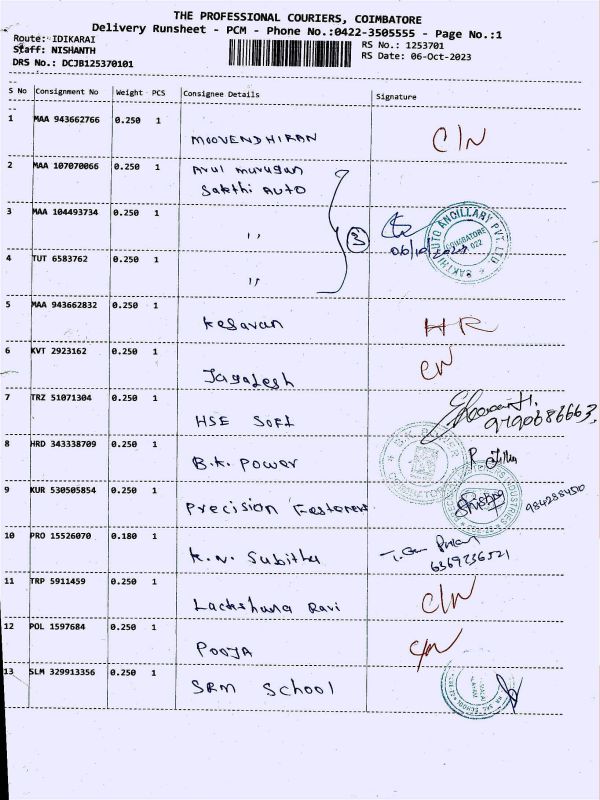 THE PROFESSIONAL COURIERS, COIMBATORE
Delivery Runsheet - PCM - Phone No.:0422-3505555 - Page No.:1
Route: IDIKARAI
Staff: NISHANTH
DRS No.: DCJB125370101
RS No.: 1253701
RS Date: 06-Oct-2023
S No Consignment No Weight PCS Consignee Details Signature
1 MAA 943662766 0.250 1
MOOVENDHIRAN C/N
2 MAA 107070066 0.250 1 Arul murugan
Sakthi AUTO
3 MAA 104493734 0.250 1
,, 3 06/10/2023
SAKTHI AUTO ANCILLARY PVT. LTD.
COIMBATORE
022
4 TUT 6583762 0.250 1
,,
5 MAA 943662832 0.250 1
Kesavan HR
6 KVT 2923162 0.250 1
Jagadesh C/N
7 TRZ 51071304 0.250 1
HSE SOFt
8 HRD 343338709 0.250 1
B.K. Power
9 KUR 530505854 0.250 1
Precision Fasteners
10 PRO 15526070 0.180 1
K.N. Subitha 6369236521
11 TRP 5911459 0.250 1
Lackshana Ravi C/N
12 POL 1597684 0.250 1
POOJA C/N
13 SLM 329913356 0.250 1
SRM School